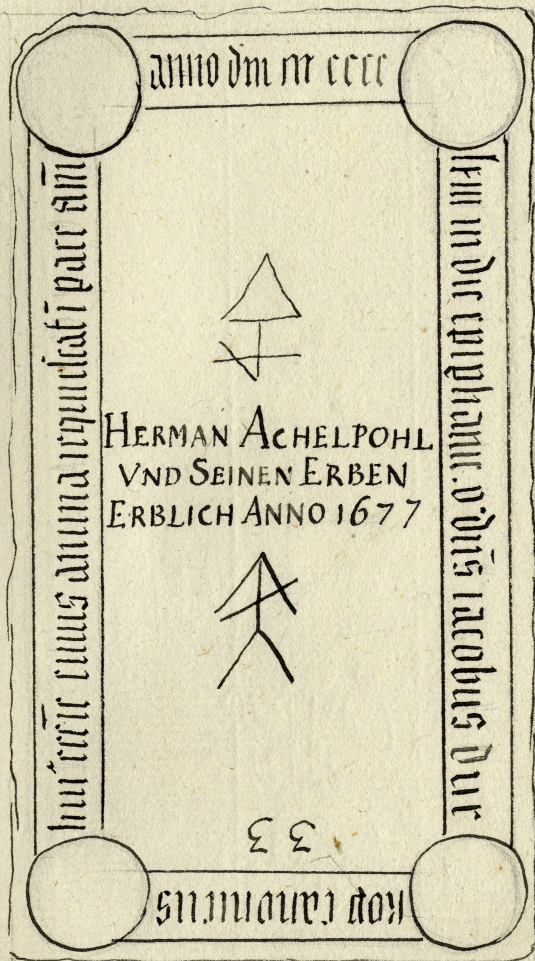 anno dm̄ m cccc
lxiii in die epiphanie o' dn̄s iacobus dur
kop canonicus
hui' eccīe cuius anima requiescat ī pace am̄
HERMAN ACHELPOHL
VND SEINEN ERBEN
ERBLICH ANNO 1677
33